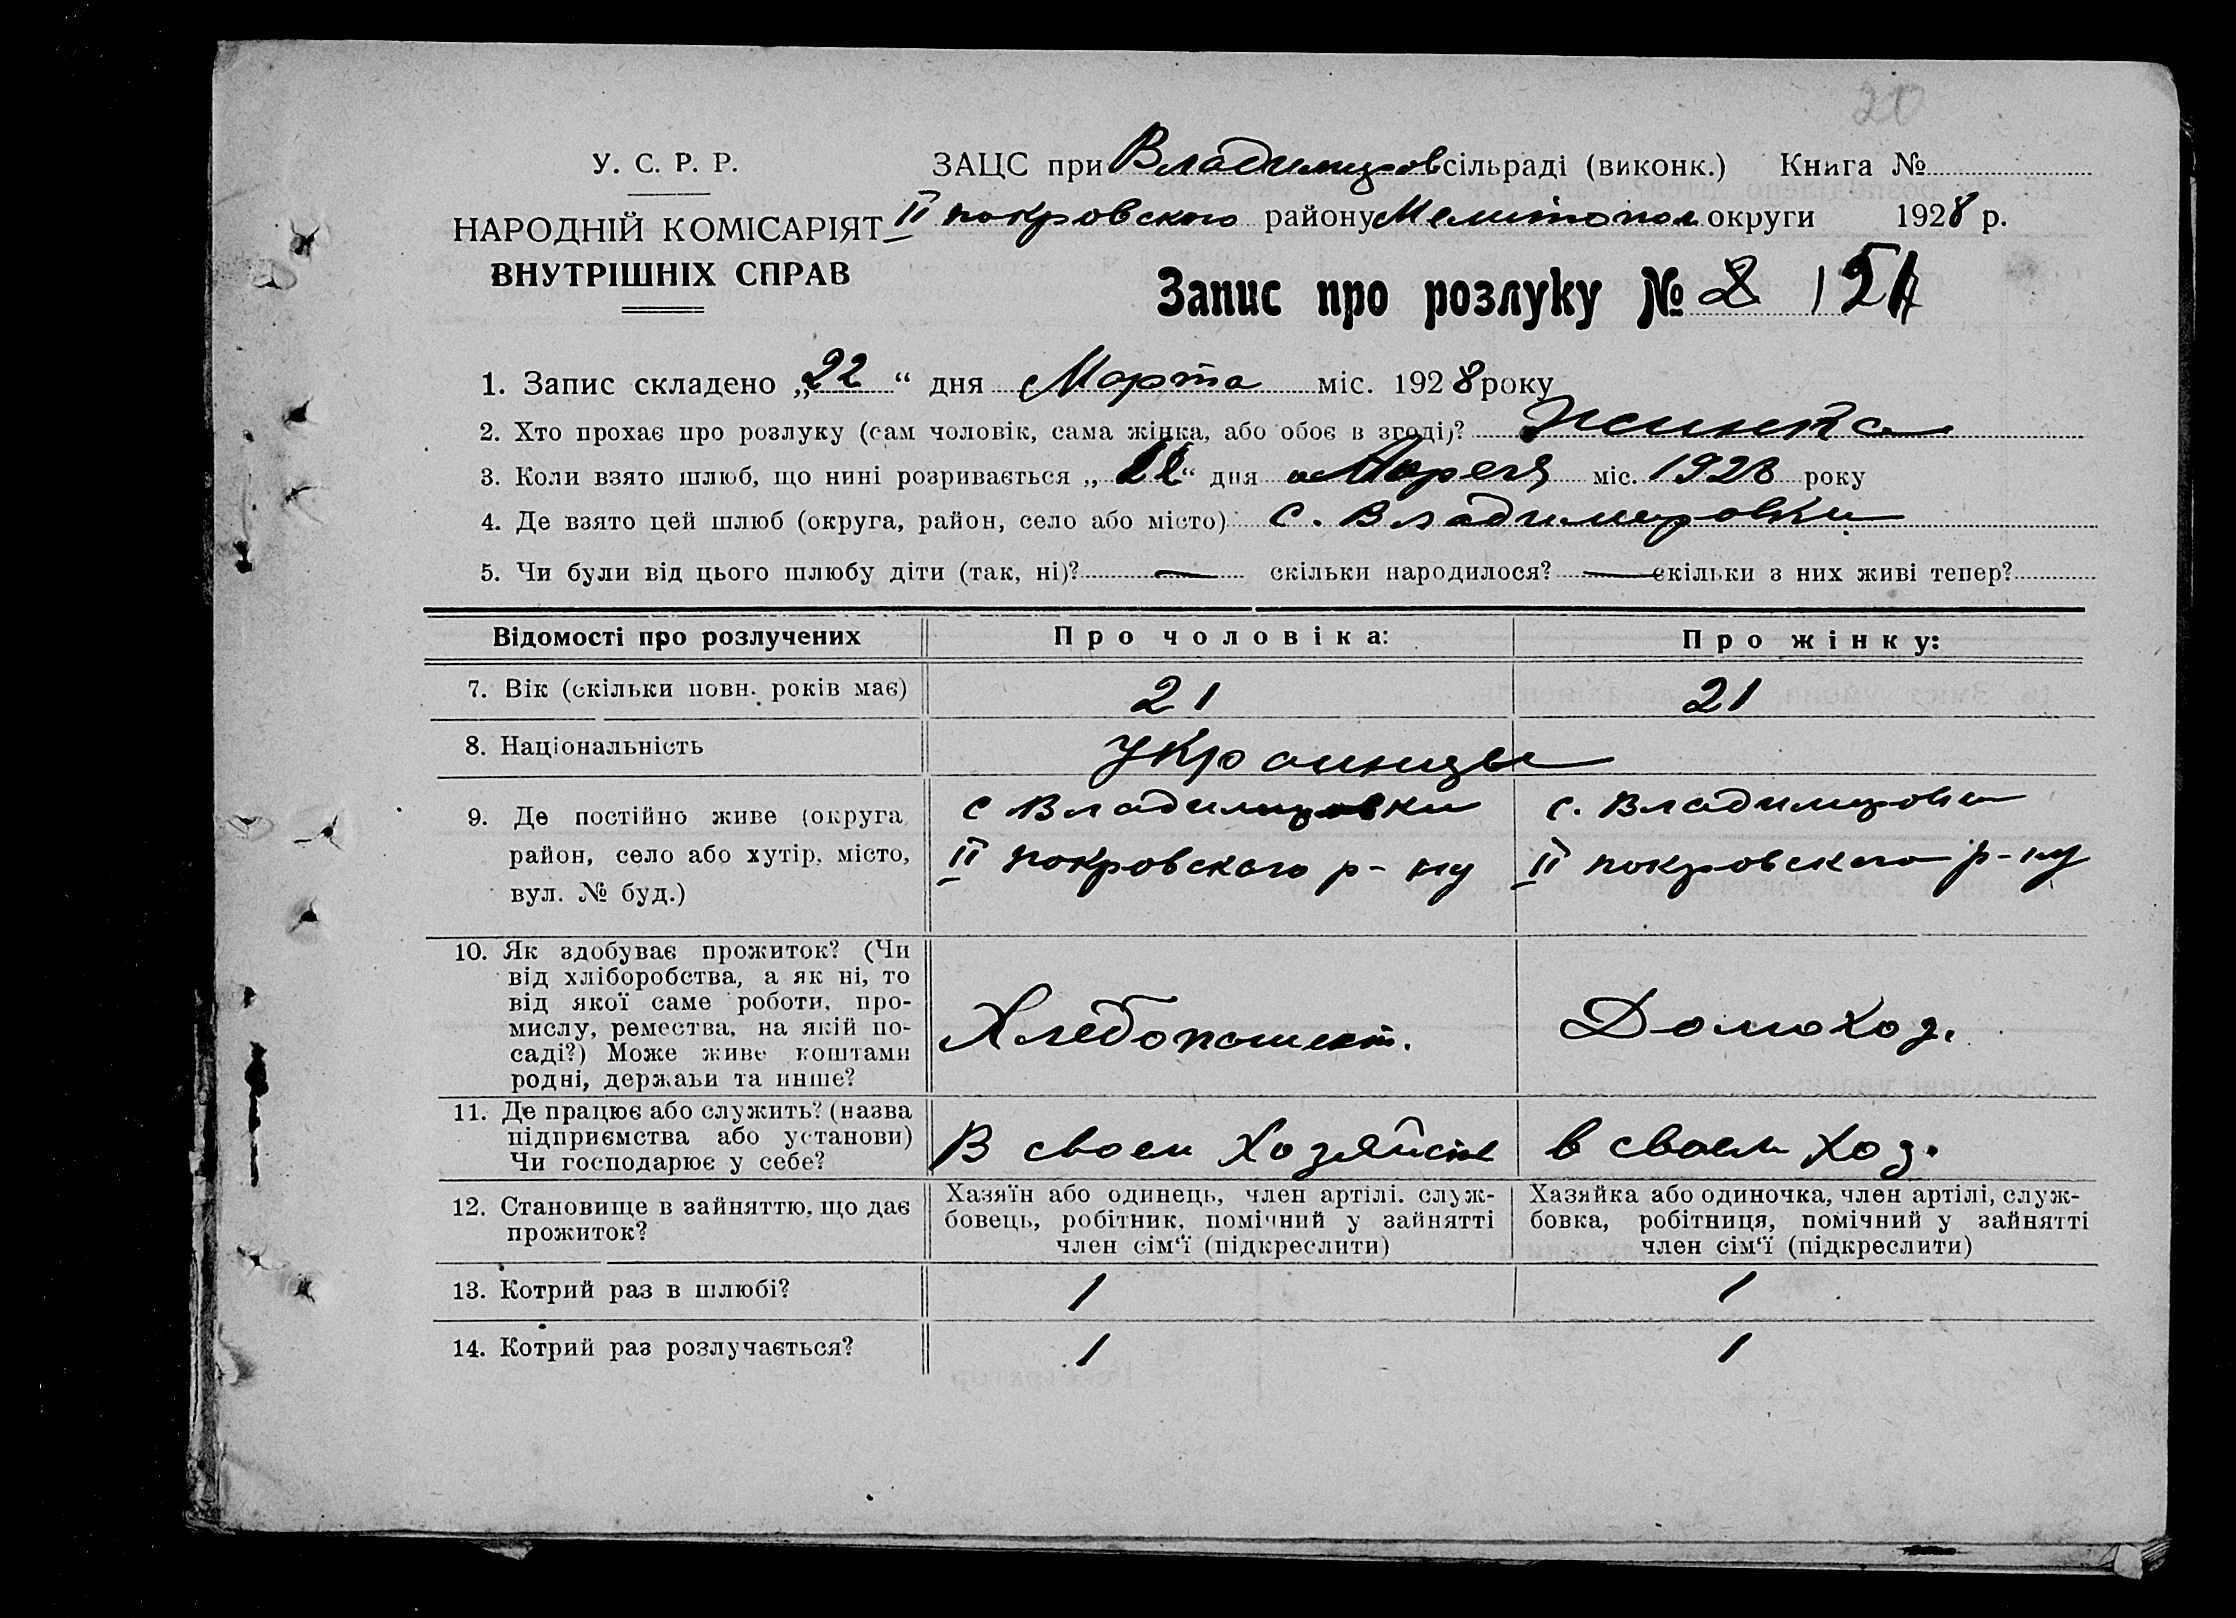 20
У. С. Р. Р.
НАРОДНІЙ КОМІСАРІЯТ
ВНУТРІШНІХ СПРАВ
ЗАЦС при Владимиров сільраді (виконк.) Книга №
II покровского району Мелитопол округи 1928 р.
Запис про розлуку № 2
1. Запис складено „22“ дня Марта міс. 1928 року
2. Хто прохає про розлуку (сам чоловік, сама жінка, або обоє в згоді)?
3. Коли взято шлюб, що нині розривається „ “ дня міс. 1923 року
4. Де взято цей шлюб (округа, район, село або місто) с. Владимировки
5. Чи були від цього шлюбу діти (так, ні)? — скільки народилося? — скільки з них живі тепер?
Відомості про розлучених Про чоловіка: Про жінку:
7. Вік (скільки повн. років має) 21 21
8. Національність Украинцы
9. Де постійно живе (округа район, село або хутір, місто, вул. № буд.)
с Владимировки
II покровского р-ну
с. Владимировки
II покровского р-ну
10. Як здобуває прожиток? (Чи
від хліборобства, а як ні, то
від якої саме роботи, про-
мислу, ремества, на якій по-
саді?) Може живе коштами
родні, держави та инше?
Хлебопашест.
Домохоз.
11. Де працює або служить? (назва
підприємства або установи)
Чи господарює у себе?
В своем Хозяйстве
в своем хоз.
12. Становище в зайняттю, що дає
прожиток?
Хазяїн або одинець, член артілі. служ-
бовець, робітник, помічний у зайнятті
член сім‘ї (підкреслити)
Хазяйка або одиночка, член артілі, служ-
бовка, робітниця, помічний у зайнятті
член сім‘ї (підкреслити)
13. Котрий раз в шлюбі? 1 1
14. Котрий раз розлучається? 1 1